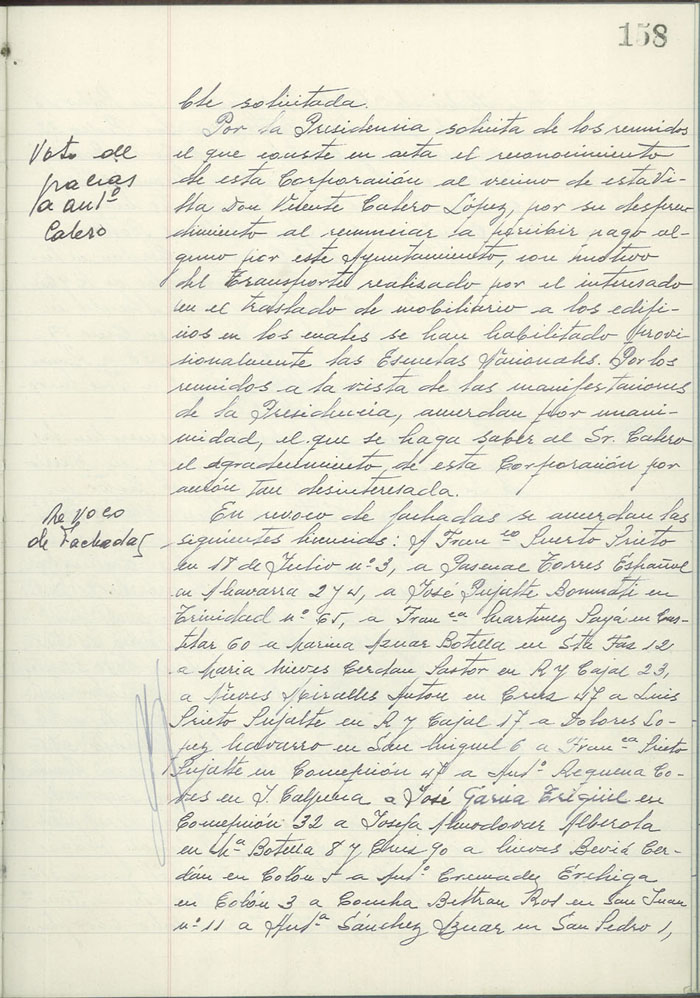 158
ble solicitada.
Voto de
gracias
a Antº
Calero
Por la Presidencia solicita de los reunidos
el que conste en acta el reconocimiento
de esta Corporación al vecino de esta Vi-
lla Don Vicente Calero López, por su despren
dimiento al renunciar la percibir pago al-
guno por este Ayuntamiento, con motivo
del Transporte realizado por el interesado
en el traslado de mobiliario a los edifi-
cios en los cuales se han habilitado Provi-
sionalmente las Escuelas Nacionales. Por los
reunidos a la vista de las manifestaciones
de la Presidencia, acuerdan por unani-
midad, el que se haga saber al Sr. Calero
el agradecimiento de esta Corporación por
acción tan desinteresada.
Revoco
de Fachadas
En revoco de fachadas se acuerdan las
siguientes licencias: A Franco Puerto Prieto
en 18 de Julio nº 3, a Pascual Torres Español
en Navarra 2 y 4, a José Pujalte Bonmati en
Trinidad nº 65, a Franca Martinez Payá en Cas-
telar 60 a Marina Aznar Botella en Sta Faz 12
a Maria Nieves Cerdan Pastor en R y Cajal 23,
a Nieves Miralles Anton en Cruz 47 a Luis
Prieto Pujalte en R y Cajal 17 a Dolores Lo-
pez Navarro en San Miguel 6 a Franca Prieto
Pujalte en Concepción 47 a Antº Requena Co-
ves en J. Calpena a José Garcia
Concepción 32 a Josefa Almodovar Alberola
en Mª Botella 8 y Cruz 90 a Nieves Beviá Cer-
dán en Colón 5 a Antº Cremades
en Colón 3 a Concha Beltran Ros en San Juan
nº 11 a Antª Sánchez Aznar en San Pedro 1,